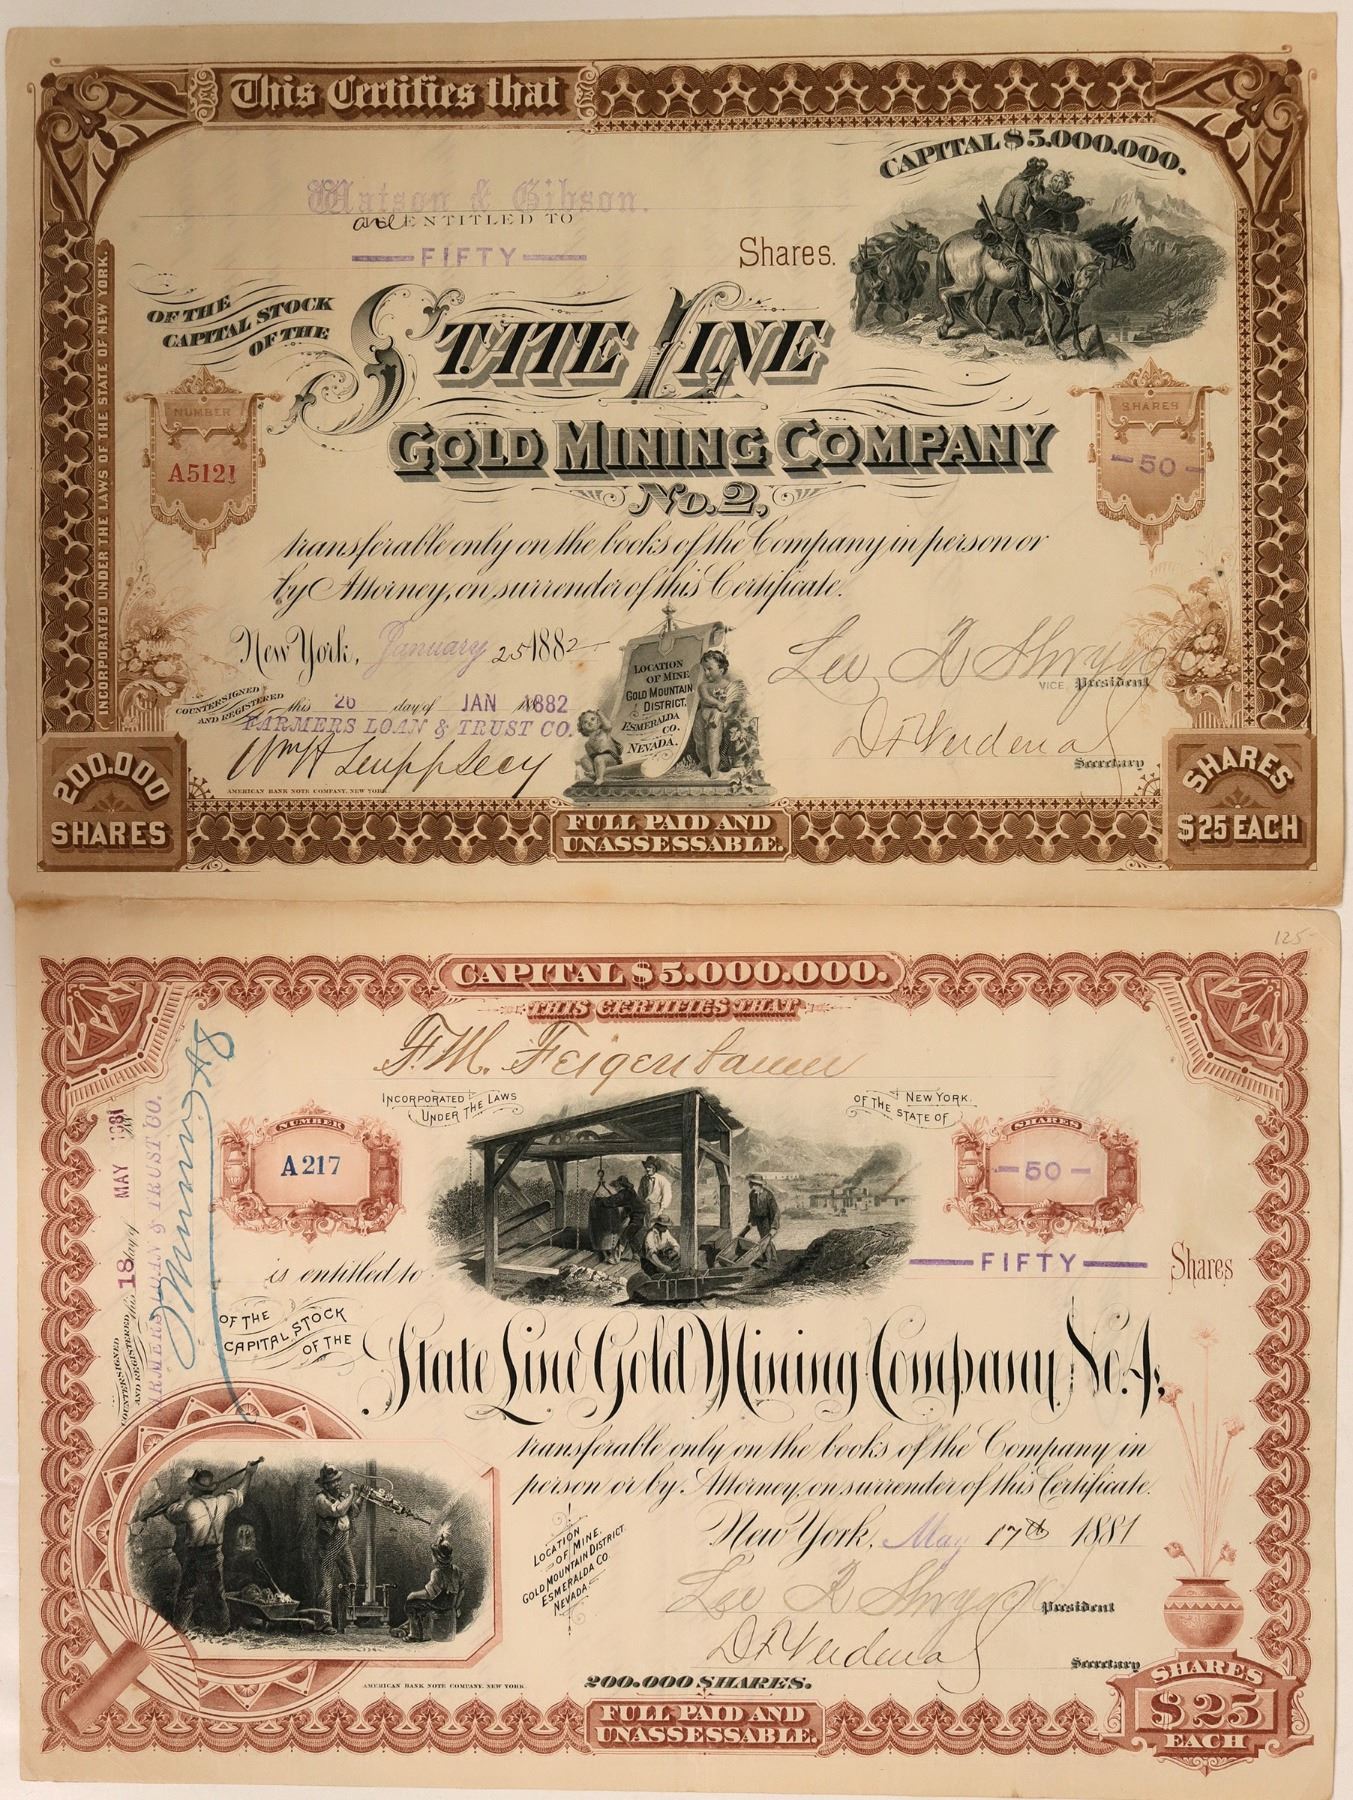 This Certifies that
CAPITAL $5.000.000.
Watson & Gibson.
are ENTITLED TO
FIFTY
Shares.
OF THE
CAPITAL STOCK
OF THE
STATE LINE
GOLD MINING COMPANY
No. 2,
NUMBER
A5121
SHARES
-50-
INCORPORATED UNDER THE LAWS OF THE STATE OF NEW YORK.
transferable only on the books of the Company in person or
by Attorney, on surrender of this Certificate.
New York, January 25 1882
COUNTERSIGNED
AND REGISTERED this 26 day of JAN 1882
FARMERS LOAN & TRUST CO.
LOCATION
OF MINE
GOLD MOUNTAIN
DISTRICT.
ESMERALDA
CO.
NEVADA.
VICE President
Secretary
AMERICAN BANK NOTE COMPANY, NEW YORK
200.000
SHARES
FULL PAID AND
UNASSESSABLE.
SHARES
$25 EACH
125-
CAPITAL $5.000.000.
THIS CERTIFIES THAT
F. M. Feigenbaum
INCORPORATED
UNDER THE LAWS
OF THE STATE OF
NEW YORK.
NUMBER
A217
SHARES
-50-
COUNTERSIGNED
AND REGISTERED this 18 day of MAY 1881
FARMERS LOAN & TRUST CO.
is entitled to
FIFTY
Shares
OF THE
CAPITAL STOCK
OF THE
State Line Gold Mining Company No. 4,
transferable only on the books of the Company in
person or by Attorney, on surrender of this Certificate.
New York, May 17th 1881
LOCATION
OF MINE,
GOLD MOUNTAIN DISTRICT
ESMERALDA CO.
NEVADA.
President
Secretary
AMERICAN BANK NOTE COMPANY, NEW YORK
200.000 SHARES.
FULL PAID AND
UNASSESSABLE.
SHARES
$25
EACH